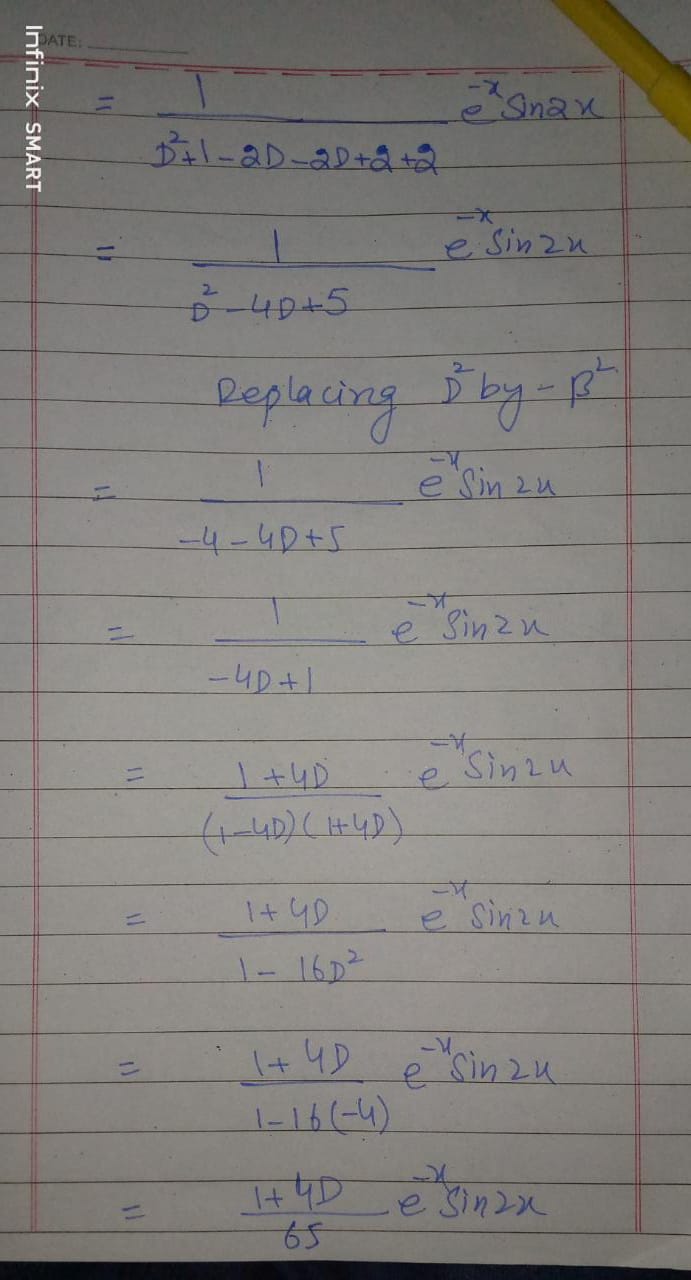 Infinix SMART
DATE:
= 1 / (D²+1-2D-2D+2+2) e^-x Sin2x
= 1 / (D²-4D+5) e^-x Sin2x
Replacing D² by -β²
= 1 / (-4-4D+5) e^-x Sin2x
= 1 / (-4D+1) e^-x Sin2x
= (1+4D) / ((1-4D)(1+4D)) e^-x Sin2x
= (1+4D) / (1-16D²) e^-x Sin2x
= (1+4D) / (1-16(-4)) e^-x Sin2x
= (1+4D) / 65 e^-x Sin2x